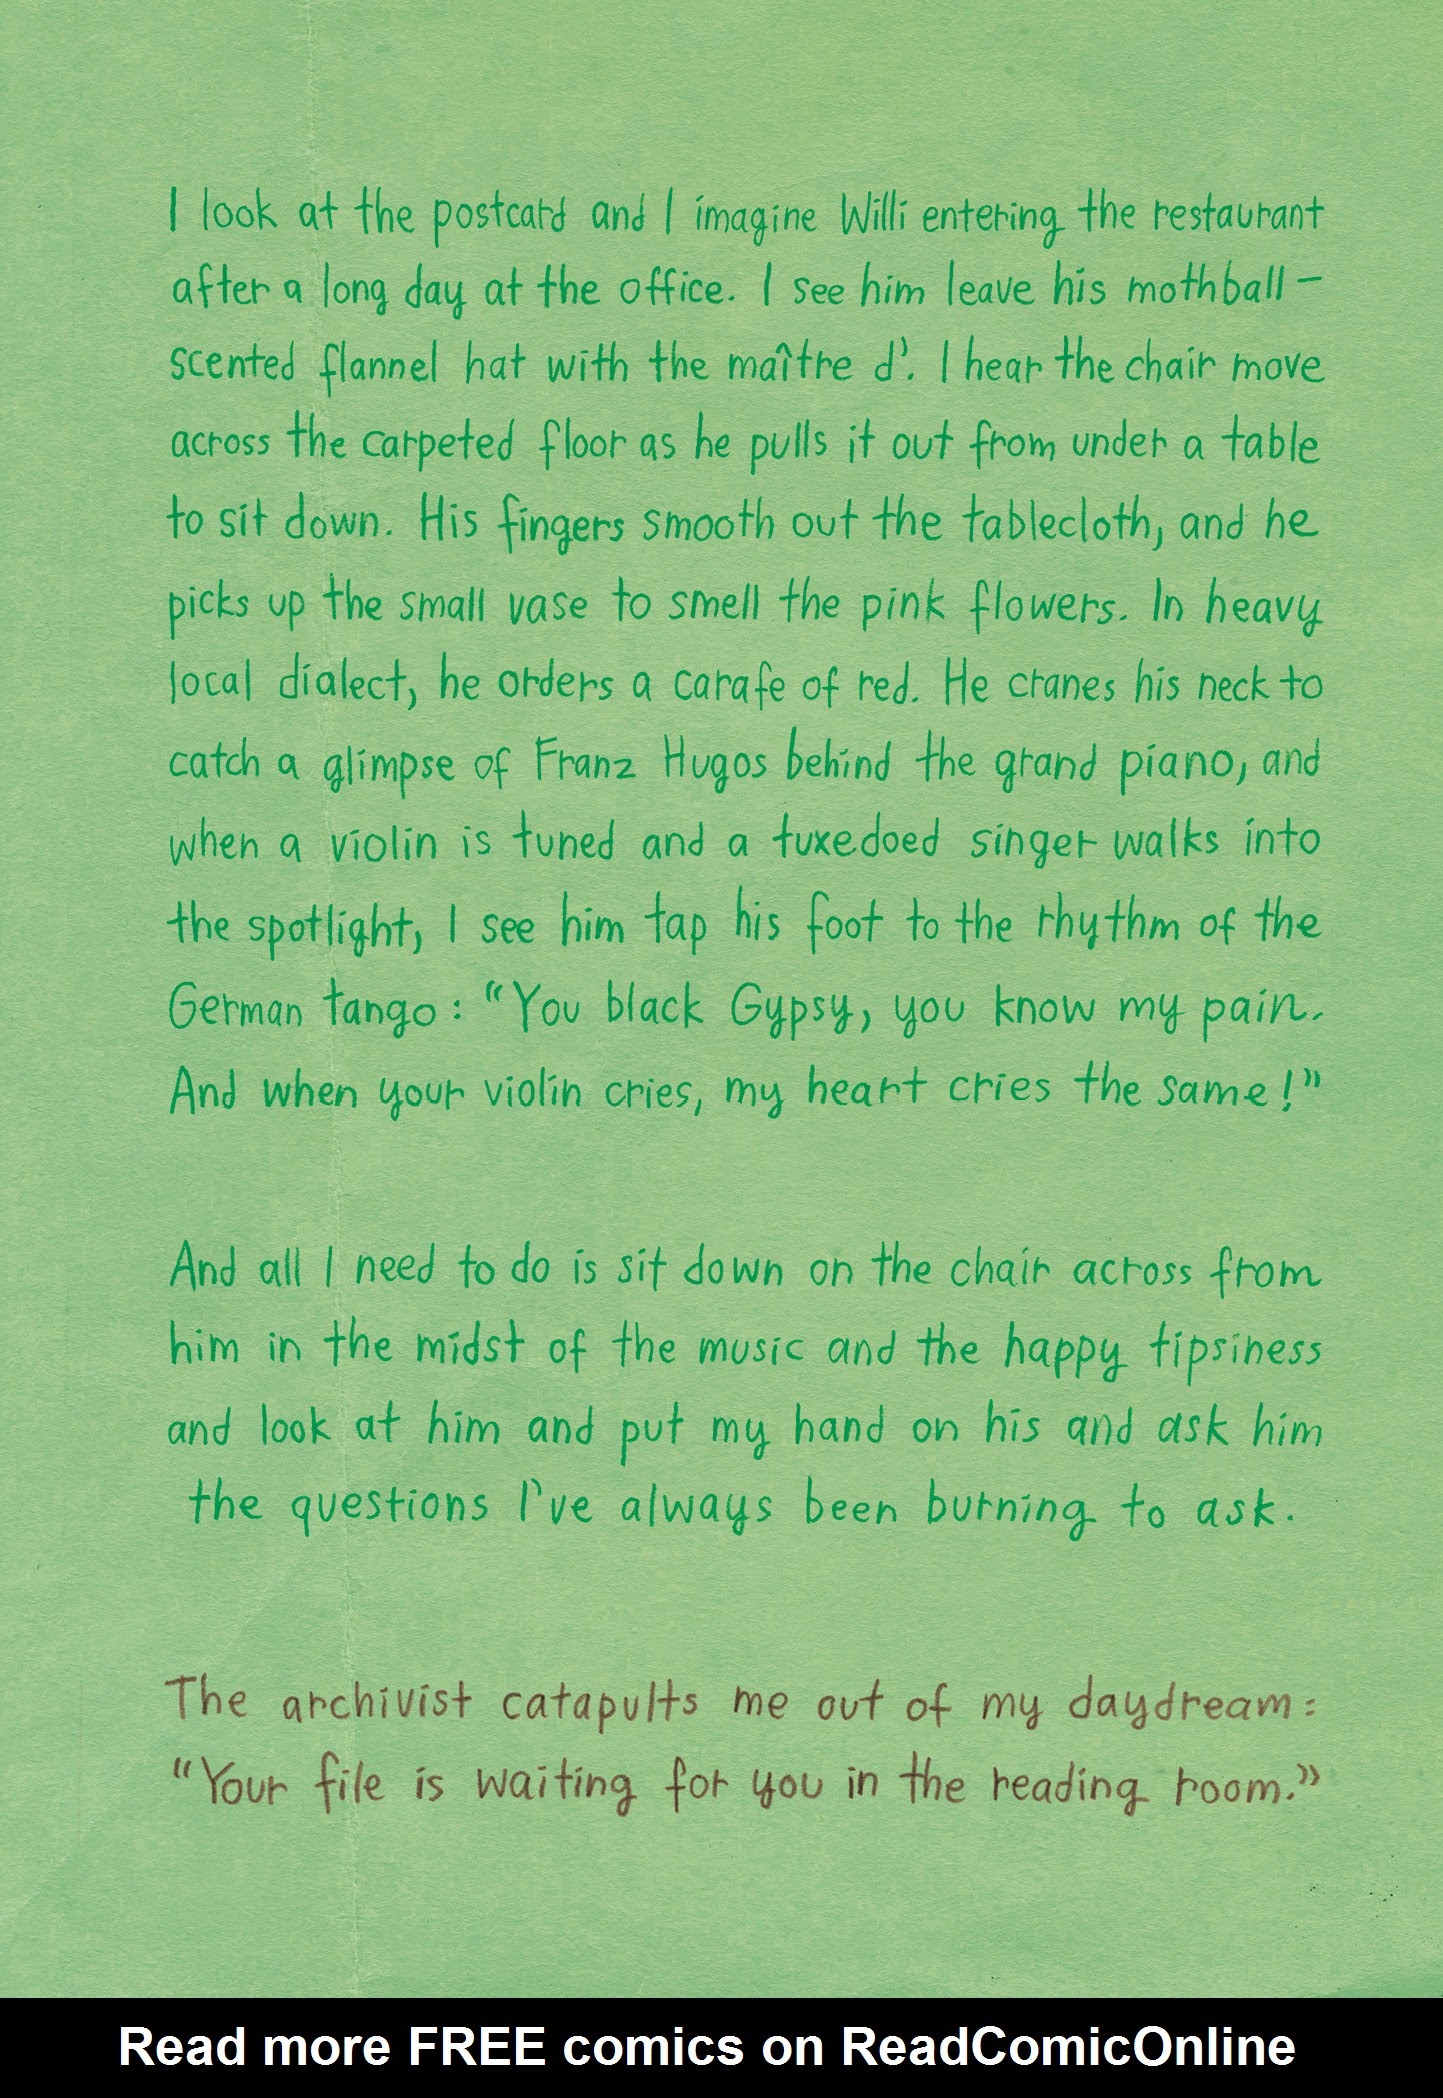 I look at the postcard and I imagine Willi entering the restaurant
after a long day at the office. I see him leave his mothball-
scented flannel hat with the maître d'. I hear the chair move
across the carpeted floor as he pulls it out from under a table
to sit down. His fingers smooth out the tablecloth, and he
picks up the small vase to smell the pink flowers. In heavy
local dialect, he orders a carafe of red. He cranes his neck to
catch a glimpse of Franz Hugos behind the grand piano, and
when a violin is tuned and a tuxedoed singer walks into
the spotlight, I see him tap his foot to the rhythm of the
German tango: “You black Gypsy, you know my pain.
And when your violin cries, my heart cries the same!”
And all I need to do is sit down on the chair across from
him in the midst of the music and the happy tipsiness
and look at him and put my hand on his and ask him
the questions I've always been burning to ask.
The archivist catapults me out of my daydream:
“Your file is waiting for you in the reading room.”
Read more FREE comics on ReadComicOnline